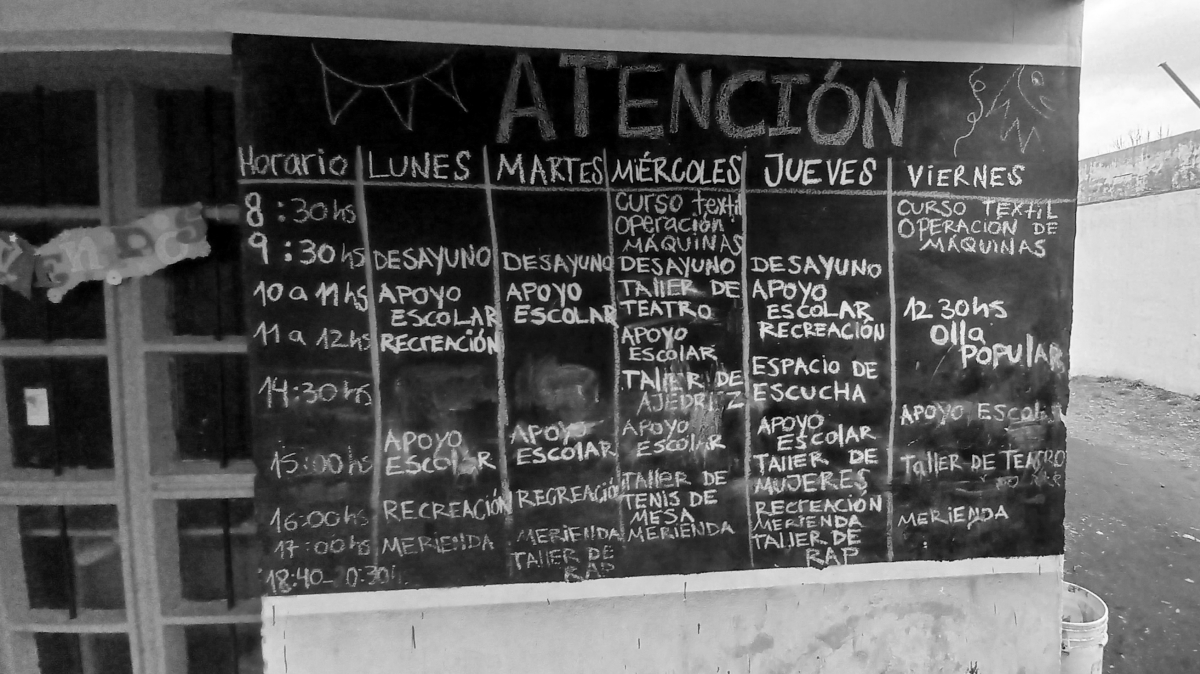 ATENCIÓN
Horario LUNES MARTES MIÉRCOLES JUEVES VIERNES
8:30hs
9:30hs
10 a 11hs
11 a 12hs
14:30hs
15:00hs
16:00hs
17:00hs
18:40
DESAYUNO
APOYO
ESCOLAR
RECREACIÓN
APOYO
ESCOLAR
RECREACIÓN
MERIENDA
DESAYUNO
APOYO
ESCOLAR
APOYO
ESCOLAR
RECREACIÓN
MERIENDA
TALLER DE
RAP
Curso textil
Operación
MÁQUINAS
DESAYUNO
TALLER DE
TEATRO
APOYO
ESCOLAR
TALLER DE
AJEDREZ
APOYO
ESCOLAR
TALLER DE
TENIS DE
MESA
MERIENDA
DESAYUNO
APOYO
ESCOLAR
RECREACIÓN
ESPACIO DE
ESCUCHA
APOYO
ESCOLAR
TALLER DE
MUJERES
RECREACIÓN
MERIENDA
TALLER DE
RAP
CURSO TEXTIL
OPERACION DE
MÁQUINAS
12 30hs
Olla
POPULAR
APOYO ESCOLAR
TALLER DE TEATRO
MERIENDA